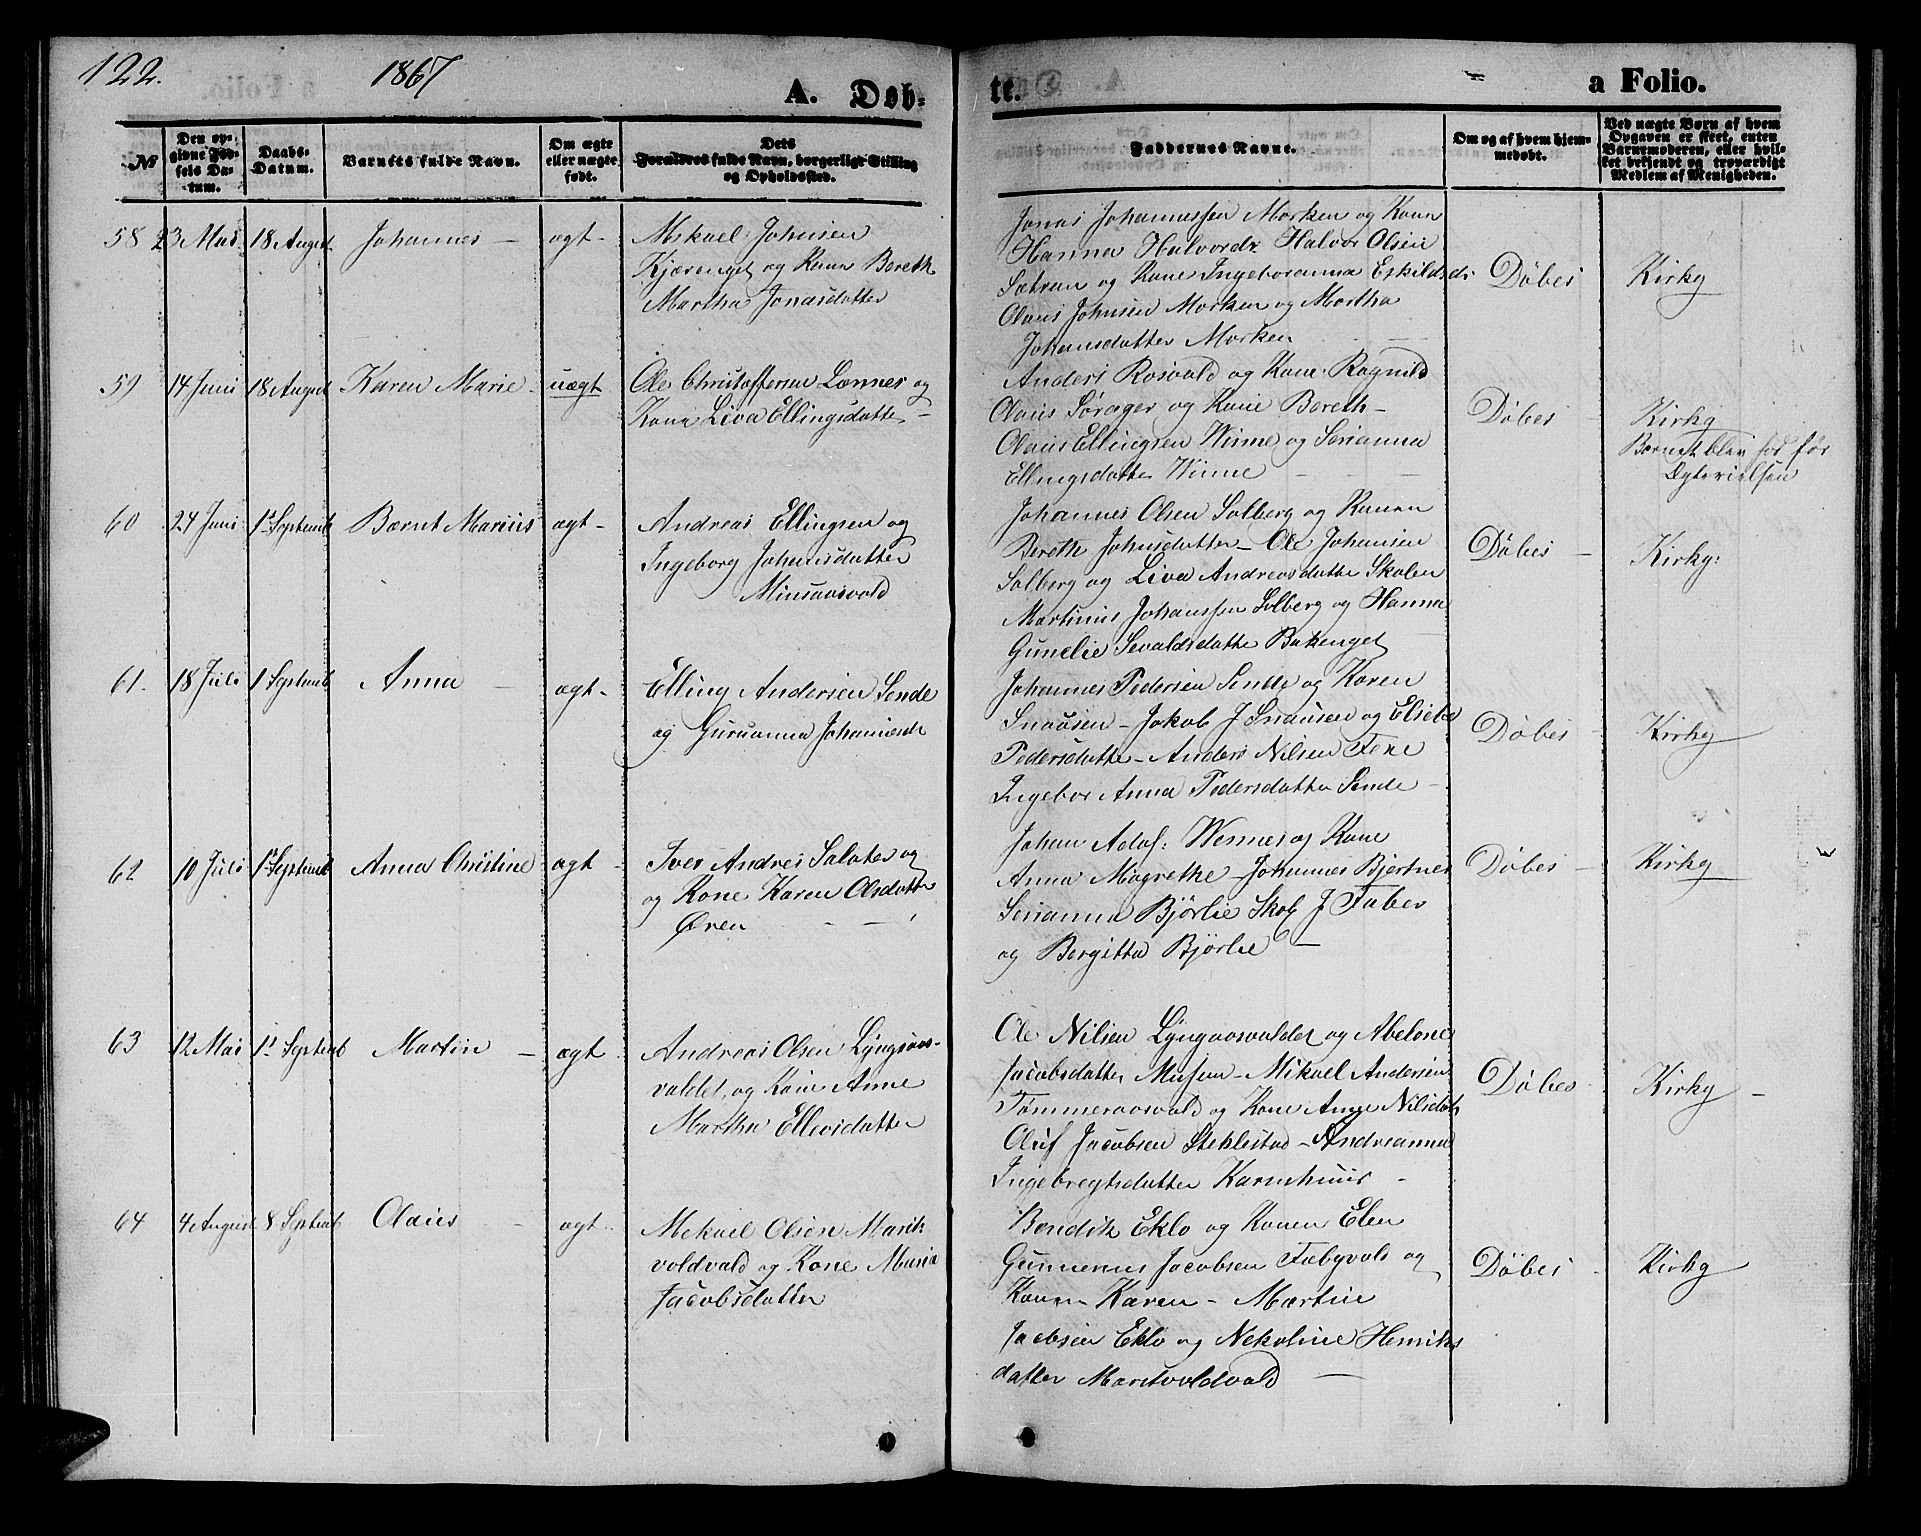 122.
1867
A. Døb-
te.
a Folio.
№
Den op-
givne Fød-
sels Da-
tum.
Daabs-
Datum.
Barnets fulde Navn.
Om ægte
eller uægte
født.
Dets
Forældres fulde Navn, borgerlige Stilling
og Opholdssted.
Faddernes Navne.
Om og af hvem hjem-
medøbt.
Ved uægte Børn af hvem
Opgaven er skeet, enten
Barnemoderen, eller hvil-
ket bekjendt og troværdigt
Medlem af Menigheden.
58
23 Mai
18 August
Johannes -
ægt -
Mikael Johnsen
Kjærenget og Kone Bereth
Martha Jonasdatter
Jonas Johannessen Morken og Kone
Hanna Halvordr Halvor Olsen
Sætran og Kone Ingeboranna Eskildsdr
Olaus Johnsen Morken og Martha
Johansdatter Morken
Døbes
Kirky
59
14 Juni
18 August
Karen Marie -
uægt
Ole Christoffersen Lænnes og
Kone Liva Ellingsdatter -
Anders Rosvald og Kone Ragnild
Olaus Søråger og Kone Bereth -
Olaus Ellingsen Winne og Serianna
Ellingsdatter Winne
Døbes -
Kirky
Barnet blev fød før
Ægtevielsen
60
24 Juni
1st Septemb
Bærnt Marius
ægt -
Andreas Ellingsen og
Ingeborg Johansdatter
Minsaasvald
Johannes Olsen Solberg og Konen
Berethe Johnsdatter - Ole Johansen
Solberg og Liva Andreasdatter Skolen
Martinus Johanssen Solberg og Hanna
Gunelie Sevaldsdatter Bakenget
Døbes -
Kirky:
61.
18 Juli
1 Septemb
Anna -
ægt -
Elling Andersen Sende
og Guruanna Johannesdr
Johannes Pedersen Sende og Karen
Snausen - Jakob J Snausen og Elsebe
Pedersdatter - Anders Nilsen Fene
Ingebor Anna Pedersdatter Sende -
Døbes -
Kirky
62
10 Juli
1st Septemb
Anna Christine
ægt -
Iver Andres Salater og
og Kone Karen Olsdatter
Øren
Johan Adof: Wennes og Kone
Anna Magrethe - Johannes Bjertnes
Serianna Bjørlie Skob J Faber
og Bergitta Bjørlie -
Døbes -
Kirky
63
12 Mai
1st Septemb
Martin -
ægt
Andreas Olsen Lyngsaas-
valdet, og Kone Anne
Martha Ellevsdatter
Ole Nilsen Lyngaasvaldet og Abelone
Jacobsdatter Musem - Mikael Andersen
Tømmeraasvald og Kone Anne Nilsdat
Oluf Jacobsen Steklestad - Andreanna
Ingebregtsdatter Karmhuus -
Døbes
Kirky -
64
4 August
8 Septemb
Olaus -
ægt -
Mekael Olsen Marit-
voldvald og Kone Maria
Jacobsdatter
Bendik Eklo og Konen Elen
Gunnerus Jacobsen Fæbyvald og
Konen Karen - Martin
Jacobsen Eklo og Nekoline Henriks
datter Maritvoldvald -
Døbes -
Kirky